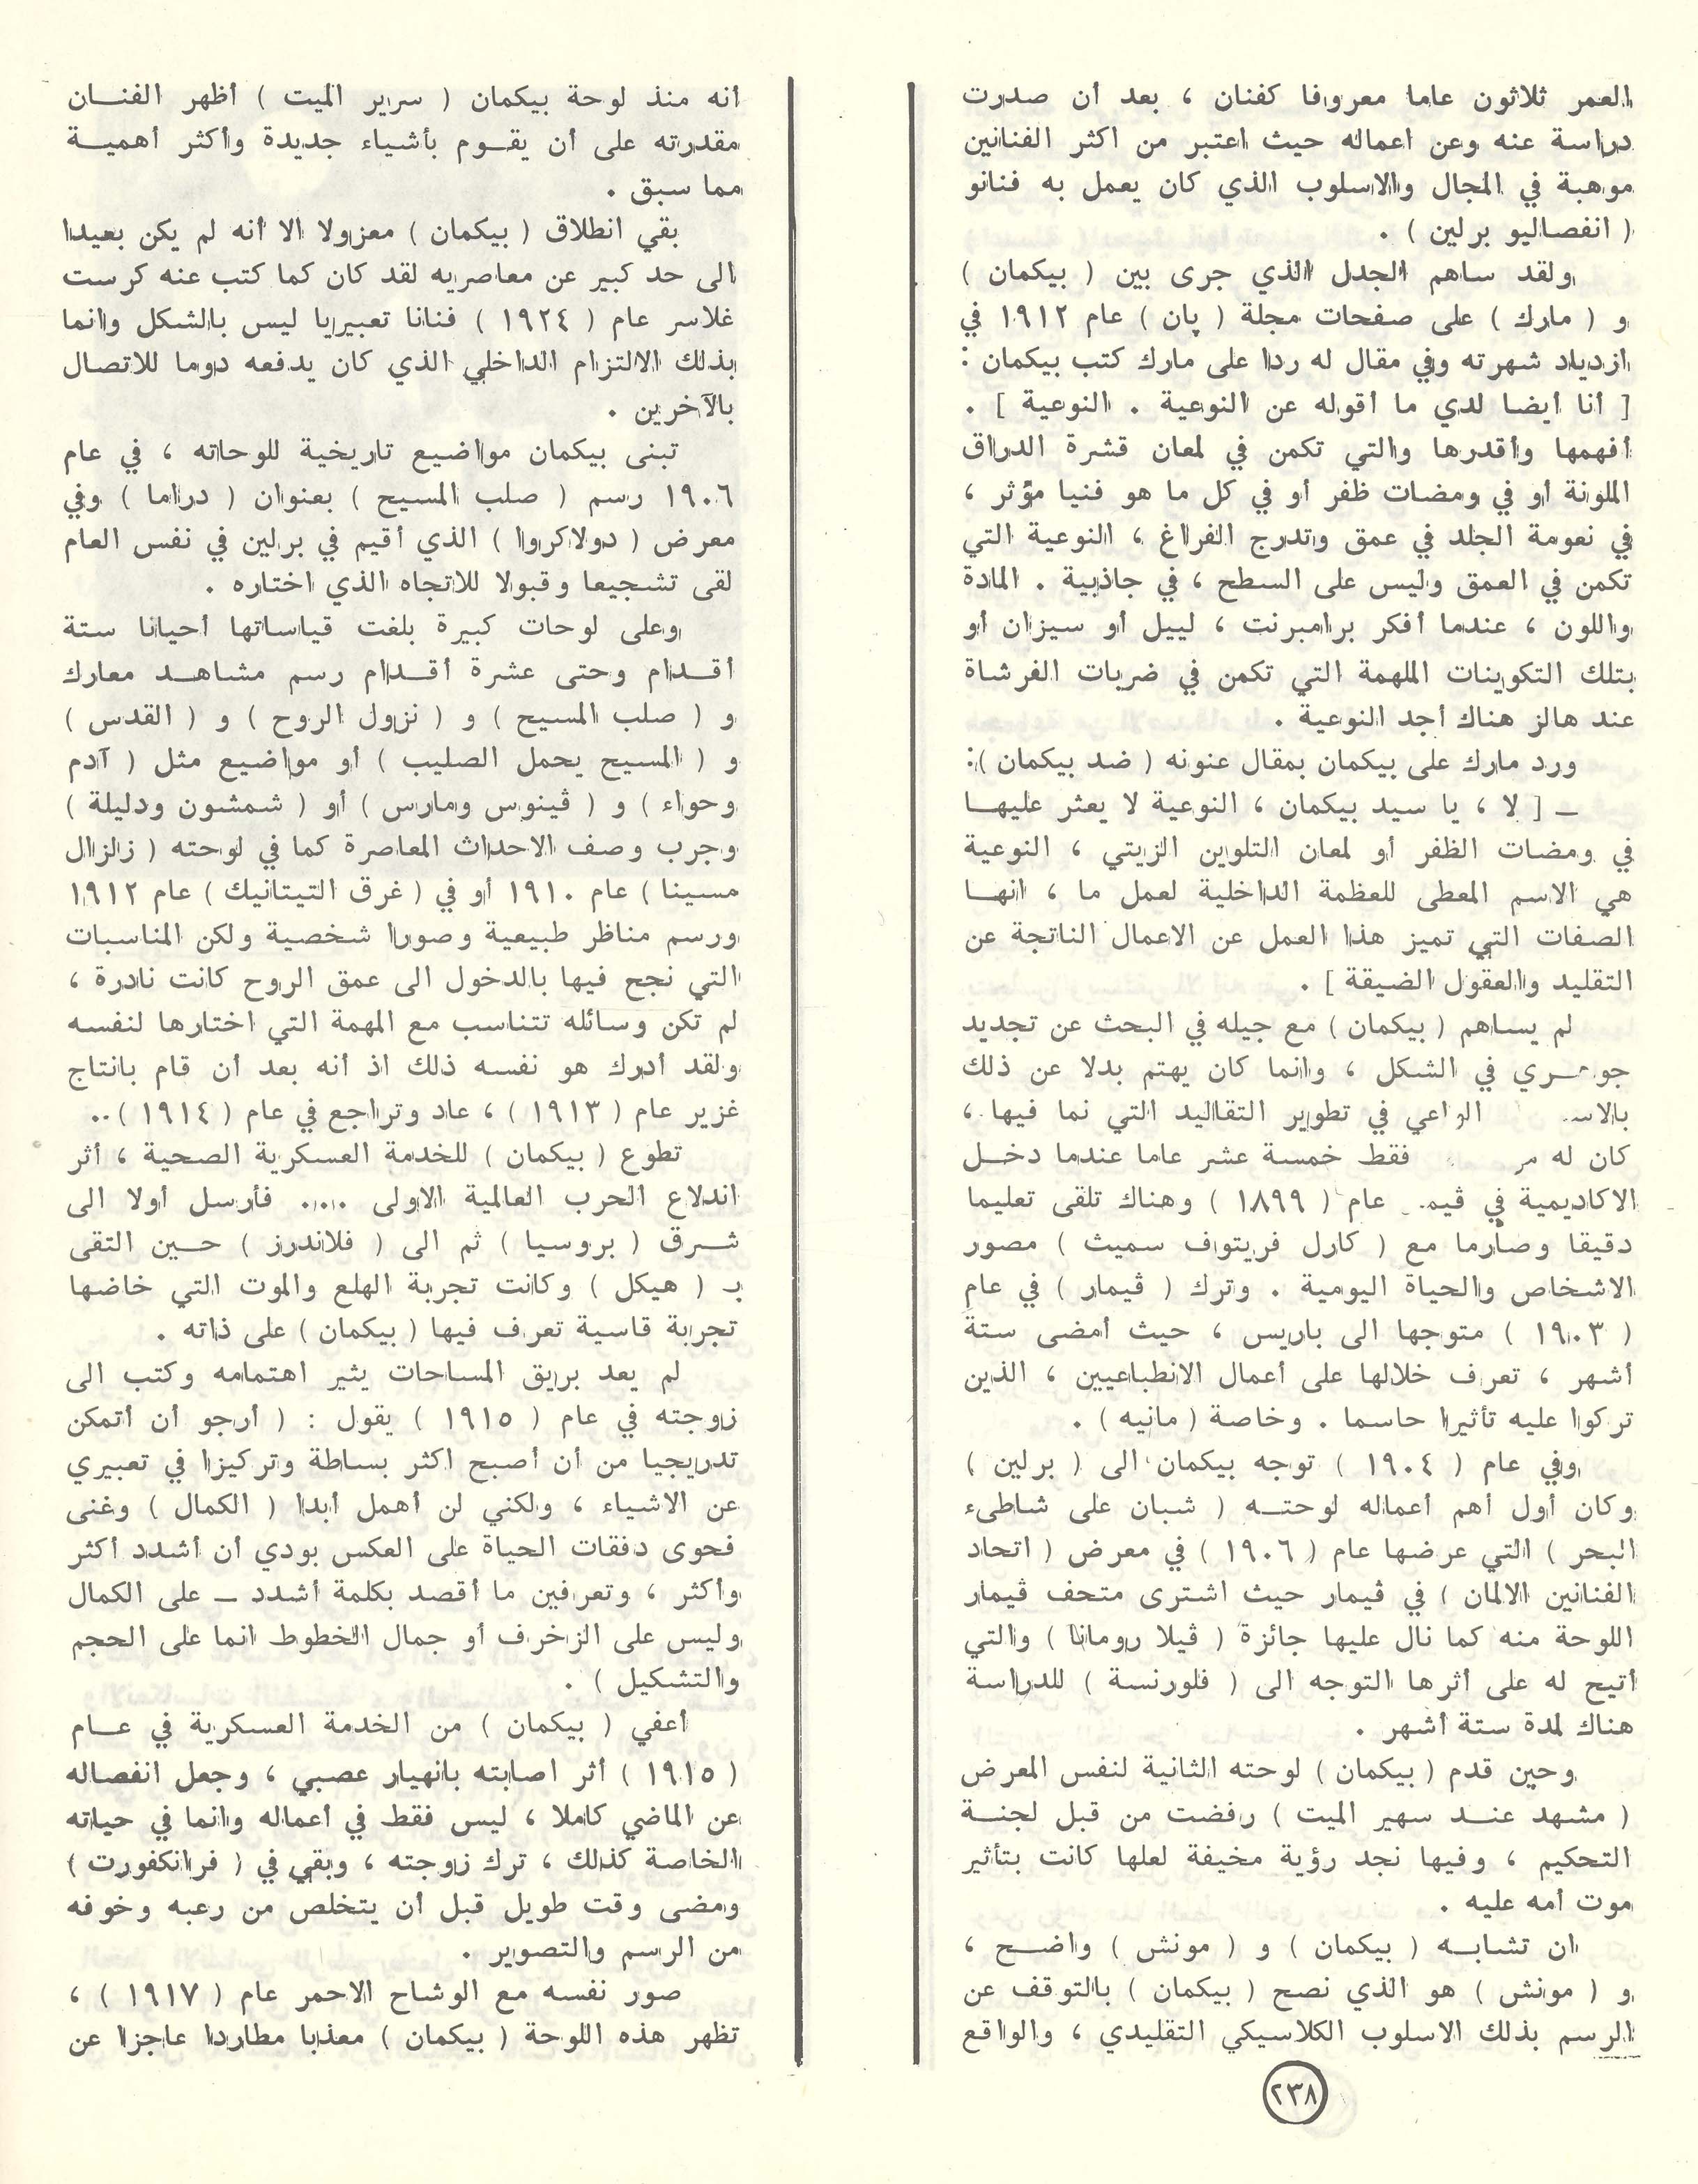 العمر ثلاثون عاما معروفا كفنان ، بعد أن صدرت
دراسة عنه وعن اعماله حيث اعتبر من اكثر الفنانين
موهبة في المجال والاسلوب الذي كان يعمل به فنانو
( انفصاليو برلين ) .
ولقد ساهم الجدل الذي جرى بين ( بيكمان )
و ( مارك ) على صفحات مجلة ( پان ) عام ١٩١٢ في
ازدياد شهرته وفي مقال له ردا على مارك كتب بيكمان :
[ أنا أيضا لدي ما أقوله عن النوعية . النوعية ] .
أفهمها وأقدرها والتي تكمن في لمعان قشرة الدراق
الملونة أو في ومضات ظفر أو في كل ما هو فنيا مؤثر ،
في نعومة الجلد في عمق وتدرج الفراغ ، النوعية التي
تكمن في العمق وليس على السطح ، في جاذبية . المادة
واللون ، عندما أفكر برامبرنت ، لييل أو سيزان أو
بتلك التكوينات الملهمة التي تكمن في ضربات الفرشاة
عند هالز هناك أجد النوعية .
ورد مارك على بيكمان بمقال عنونه ( ضد بيكمان ):
ـ [ لا ، يا سيد بيكمان ، النوعية لا يعثر عليهـا
في ومضات الظفر أو لمعان التلوين الزيتي ، النوعية
هي الاسم المعطى للعظمة الداخلية لعمل ما ، انهـا
الصفات التي تميز هذا العمل عن الاعمال الناتجة عن
التقليد والعقول الضيقة ] .
لم يساهم ( بيكمان ) مع جيله في البحث عن تجديد
جوهـري في الشكل ، وانما كان يهتم بدلا عن ذلك
الواعي في تطوير التقاليد التي نما فيها ،
كان له فقط خمسة عشر عاما عندما دخـل
الاكاديمية في عام ( ١٨٩٩ ) وهناك تلقى تعليما
دقيقا وصارما مع ( كارل فريتوف سميث ) مصور
الاشخاص والحياة اليومية . وترك ( ڤيمار ) في عام
( ١٩٠٣ ) متوجها الى باريس ، حيث أمضى ستة
أشهر ، تعرف خلالها على أعمال الانطباعيين ، الذين
تركوا عليه تأثيرا حاسما . وخاصة ( مانيه ) .
وفي عام ( ١٩٠٤ ) توجه بيكمان الى ( برلين )
وكان أول أهم أعماله لوحتـه ( شبان على شاطىء
البحر ) التي عرضها عام ( ١٩٠٦ ) في معرض ( اتحاد
الفنانين الالمان ) في ڤيمار حيث اشترى متحف ڤيمار
اللوحة منه كما نال عليها جائزة ( ڤيلا رومانا ) والتي
أتيح له على أثرها التوجه الى ( فلورنسة ) للدراسة
هناك لمدة ستة أشهر .
وحين قدم ( بيكمان ) لوحته الثانية لنفس المعرض
( مشهد عنـد سهير الميت ) رفضت من قبل لجنـة
التحكيم ، وفيها نجد رؤية مخيفة لعلها كانت بتأثير
موت أمه عليه .
ان تشابـه ( بيكمان ) و ( مونش ) واضـح ،
و ( مونش ) هو الذي نصح ( بيكمان ) بالتوقف عن
الرسم بذلك الاسلوب الكلاسيكي التقليدي ، والواقع
أنه منذ لوحة بيكمان ( سرير الميت ) أظهر الفنـان
مقدرته على أن يقـوم بأشياء جديدة وأكثر أهميـة
مما سبق .
بقي انطلاق ( بيكمان ) معزولا الا أنه لم يكن بعيدا
الى حد كبير عن معاصريه لقد كان كما كتب عنه كرست
غلاسر عام ( ١٩٢٤ ) فنانا تعبيريا ليس بالشكل وانما
بذلك الالتزام الداخلي الذي كان يدفعه دوما للاتصال
بالآخرين .
تبنى بيكمان مواضيع تاريخية للوحاته ، في عام
١٩٠٦ رسم ( صلب المسيح ) بعنوان ( دراما ) وفي
معرض ( دولاكروا ) الذي أقيم في برلين في نفس العام
لقى تشجيعا وقبولا للاتجاه الذي اختاره .
وعلى لوحات كبيرة بلغت قياساتها أحيانا ستة
أقـدام وحتى عشرة أقـدام رسم مشاهـد معارك
و ( صلب المسيح ) و ( نزول الروح ) و ( القدس )
و ( المسيح يحمل الصليب ) أو مواضيع مثل ( آدم
وحواء ) و ( ڤينوس ومارس ) أو ( شمشون ودليلة )
وجرب وصف الاحداث المعاصرة كما في لوحته ( زلزال
مسينا ) عام ١٩١٠ أو في ( غرق التيتانيك ) عام ١٩١٢
ورسم مناظر طبيعية وصورا شخصية ولكن المناسبات
التي نجح فيها بالدخول الى عمق الروح كانت نادرة ،
لم تكن وسائله تتناسب مع المهمة التي اختارها لنفسه
ولقد أدرك هو نفسه ذلك اذ أنه بعد أن قام بانتاج
غزير عام ( ١٩١٣ ) ، عاد وتراجع في عام ( ١٩١٤ ) ..
تطوع ( بيكمان ) للخدمة العسكرية الصحية ، أثر
اندلاع الحرب العالمية الاولى .... فأرسل أولا الى
شـرق ( بروسيا ) ثم الى ( فلاندرز ) حـين التقى
بـ ( هيكل ) وكانت تجربة الهلع والموت التي خاضها
تجربة قاسية تعرف فيها ( بيكمان ) على ذاته .
لم يعد بريق المساحات يثير اهتمامه وكتب الى
زوجته في عام ( ١٩١٥ ) يقول : ( أرجو أن أتمكن
تدريجيا من أن أصبح اكثر بساطة وتركيزا في تعبيري
عن الاشياء ، ولكني لن أهمل أبدا ( الكمال ) وغنى
فحوى دفقات الحياة على العكس بودي أن أشدد أكثر
وأكثر ، وتعرفين ما أقصد بكلمة أشدد ـ على الكمال
وليس على الزخرف أو جمال الخطوط انما على الحجم
والتشكيل ) .
أعفي ( بيكمان ) من الخدمة العسكرية في عـام
( ١٩١٥ ) أثر اصابته بانهيار عصبي ، وجعل انفصاله
عن الماضي كاملا ، ليس فقط في أعماله وانما في حياته
الخاصة كذلك ، ترك زوجته ، وبقي في ( فرانكفورت )
ومضى وقت طويل قبل أن يتخلص من رعبه وخوفه
من الرسم والتصوير .
صور نفسه مع الوشاح الاحمر عام ( ١٩١٧ ) ،
تظهر هذه اللوحة ( بيكمان ) معذبا مطاردا عاجزا عن
٢٣٨